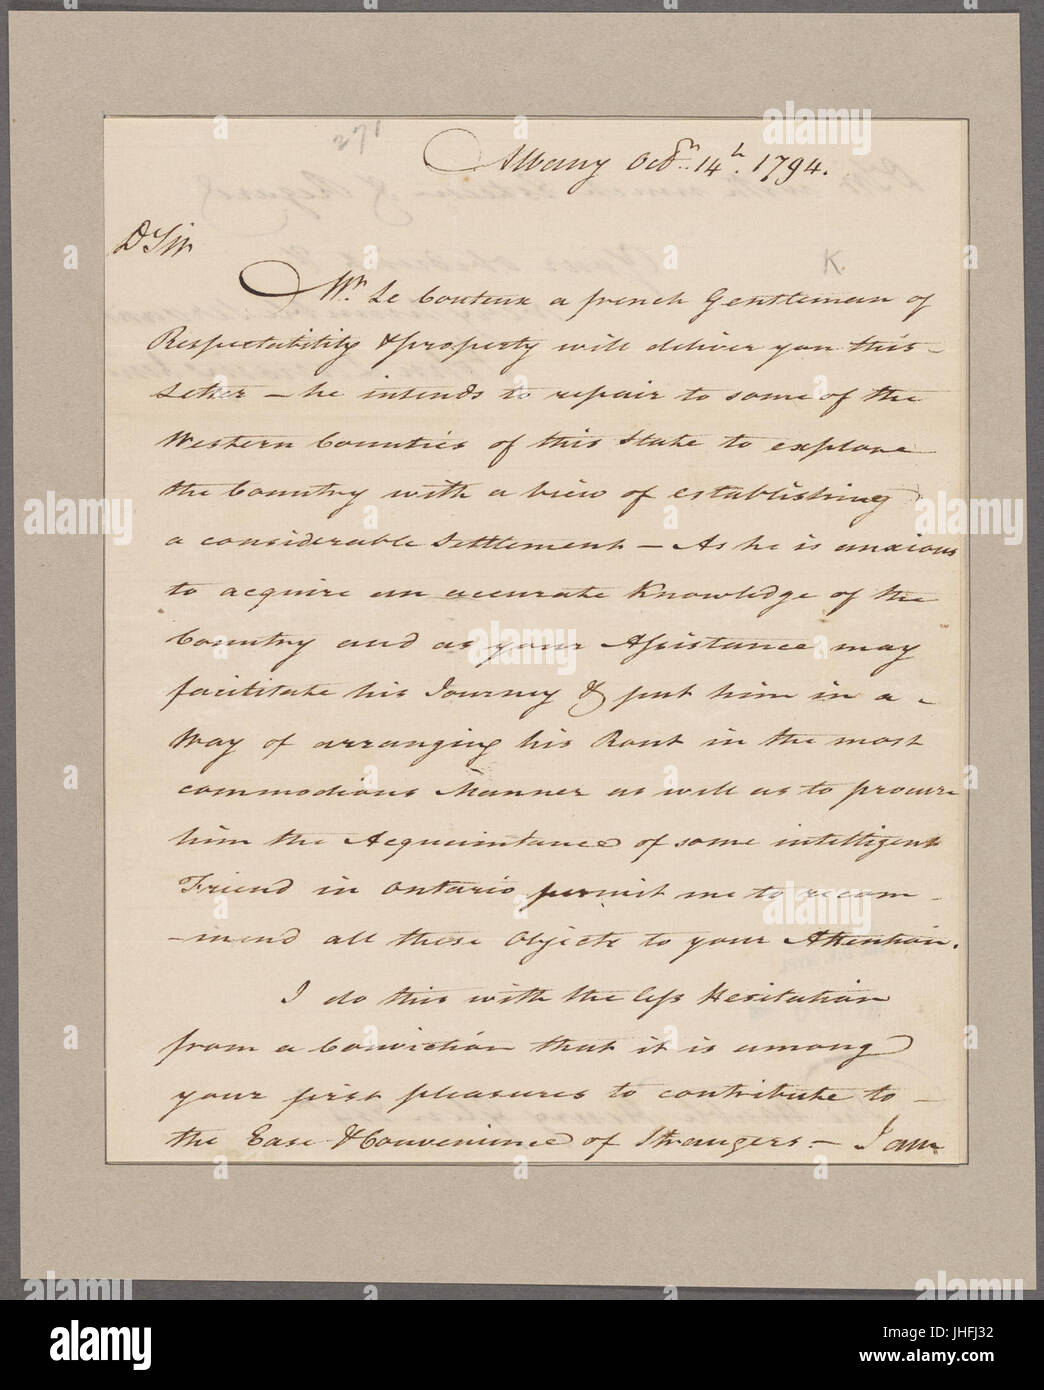 271
Albany Octbr. 14h. 1794.
D Sir
K.
Mr. Le Couteux a french Gentleman of
Respectability & property will deliver you this
Letter – he intends to repair to some of the
Western Counties of this State to explore
the Country with a view of establishing
a considerable Settlement – As he is anxious
to acquire an accurate Knowledge of the
Country and as your Assistance may
facilitate his Journey & put him in a
Way of arranging his Rout in the most
commodious Manner as well as to procure
him the Acquaintance of some intelligent
Friend in Ontario permit me to recom-
-mend all these Objects to your Attention.
I do this with the less Hesitation
from a Conviction that it is among
your first pleasures to contribute to
the Ease & Convenience of Strangers. – I am
alamy
Image ID: JHFJ32
www.alamy.com